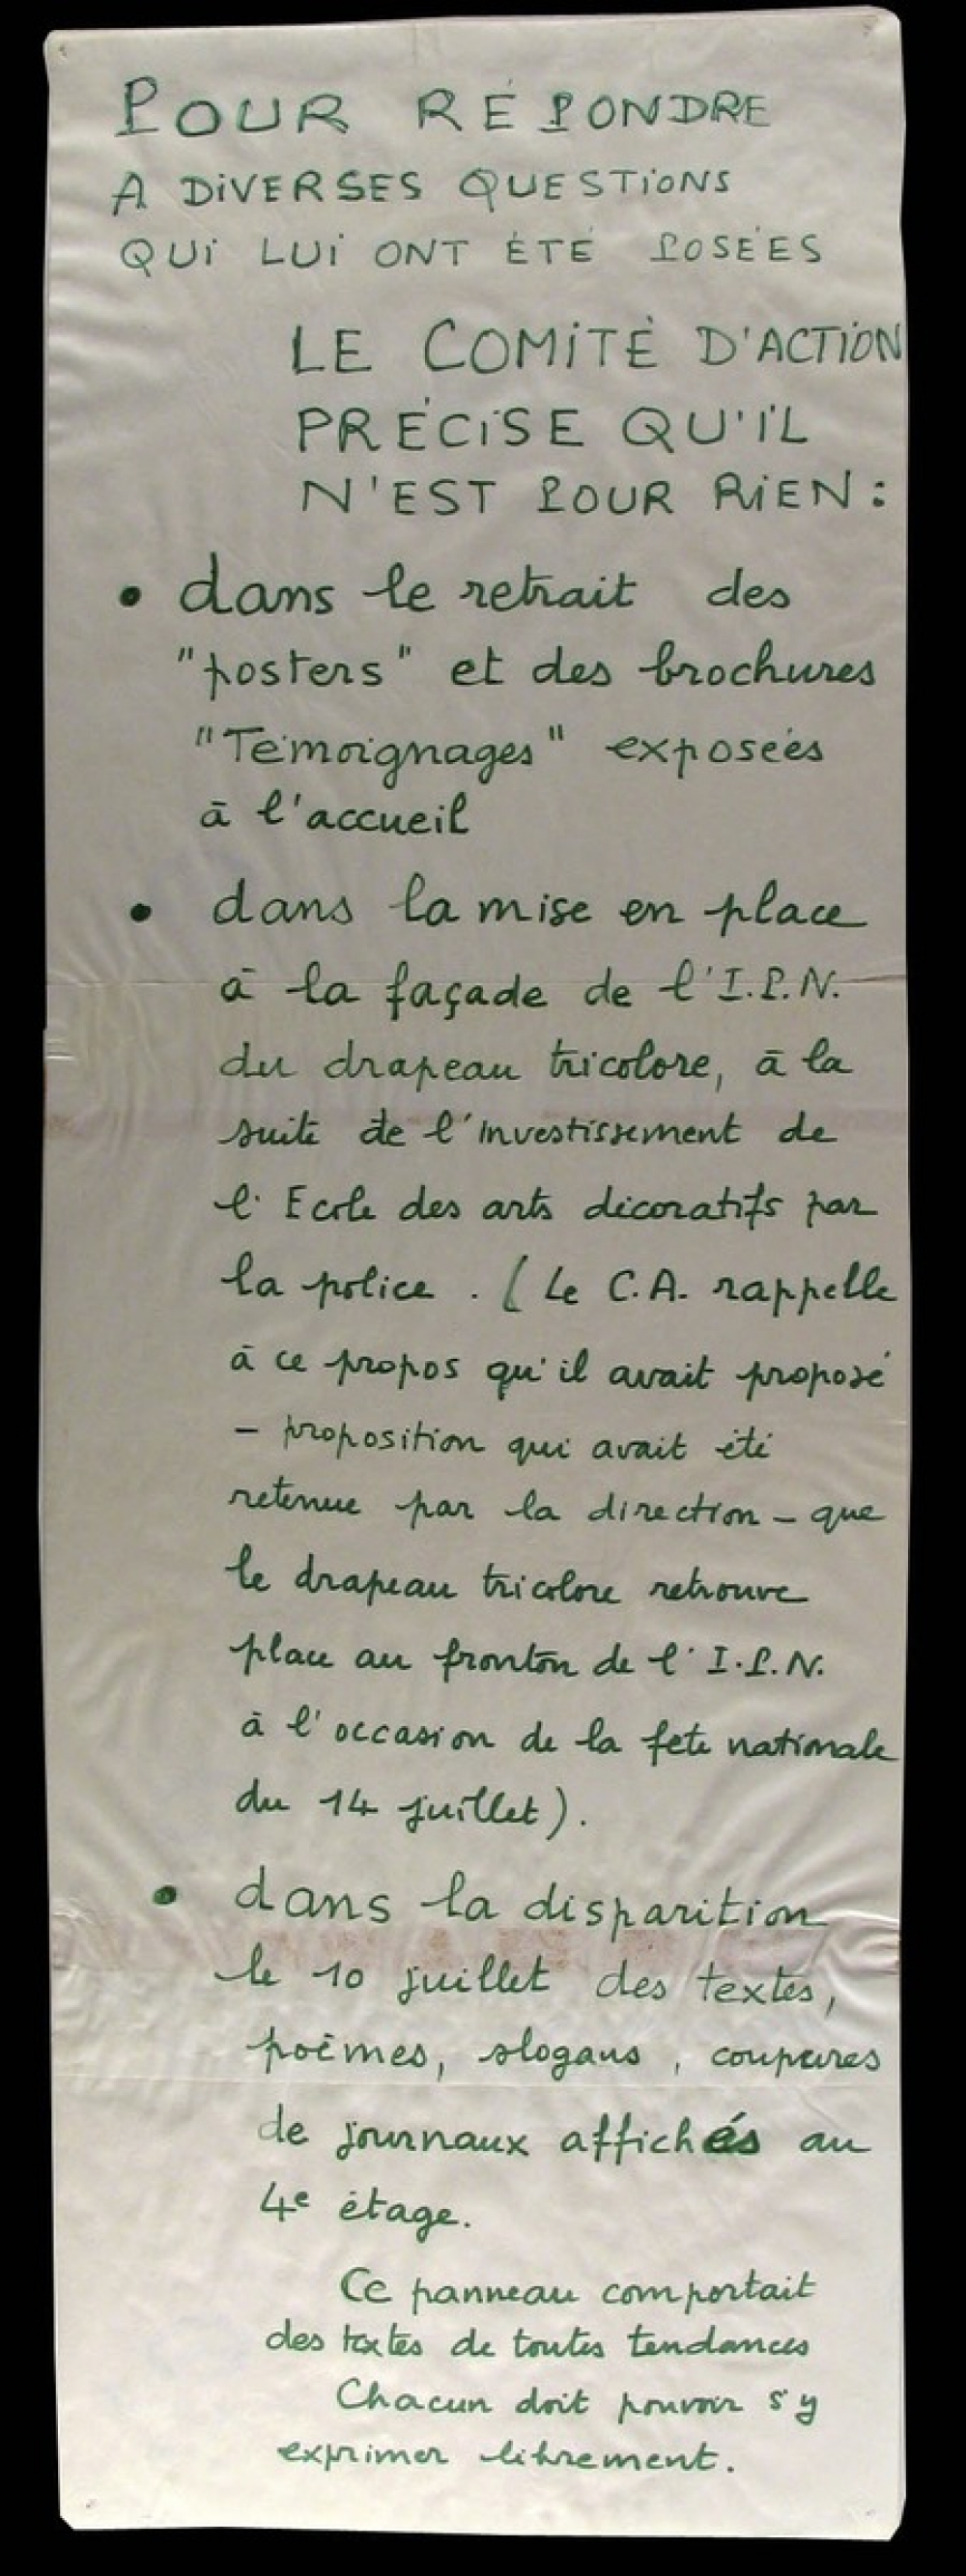 POUR RÉPONDRE
A DIVERSES QUESTIONS
QUI LUI ONT ÉTÉ POSÉES
LE COMITÉ D'ACTION
PRÉCISE QU'IL
N'EST POUR RIEN :
• dans le retrait des
"posters" et des brochures
"Témoignages" exposées
à l'accueil
• dans la mise en place
à la façade de l'I.P.N.
du drapeau tricolore, à la
suite de l'investissement de
l'Ecole des arts décoratifs par
la police. (Le C.A. rappelle
à ce propos qu'il avait proposé
- proposition qui avait été
retenue par la direction - que
le drapeau tricolore retrouve
place au fronton de l'I.P.N.
à l'occasion de la fete nationale
du 14 juillet).
• dans la disparition
le 10 juillet des textes,
poèmes, slogans, coupures
de journaux affichés au
4e étage.
Ce panneau comportait
des textes de toutes tendances
Chacun doit pouvoir s'y
exprimer librement.